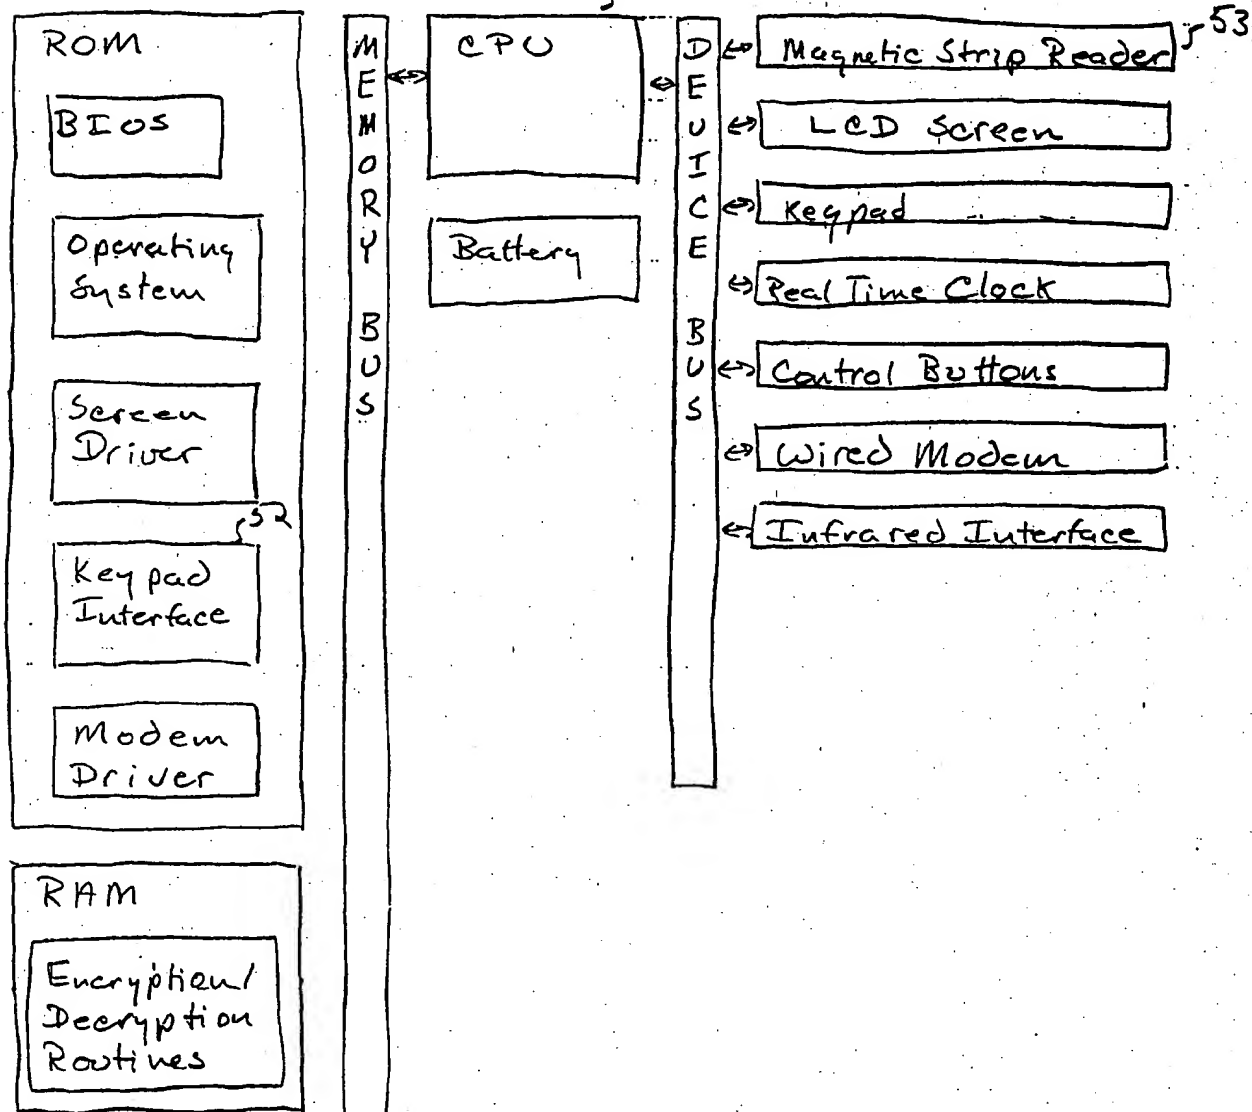 ROM
BIOS
Operating
System
Screen
Driver
52
Keypad
Interface
Modem
Driver
RAM
Encryption/
Decryption
Routines
MEMORY BUS
CPU
Battery
DEVICE BUS
Magnetic Strip Reader
53
LCD Screen
Keypad
Real Time Clock
Control Buttons
Wired Modem
Infrared Interface